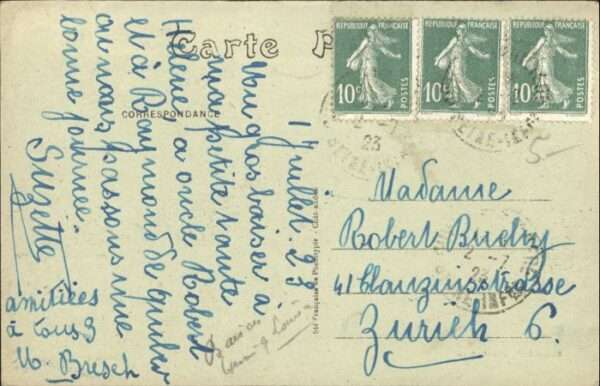 Carte P
CORRESPONDANCE
RÉPUBLIQUE FRANÇAISE
10c POSTES
RÉPUBLIQUE FRANÇAISE
10c POSTES
RÉPUBLIQUE FRANÇAISE
10c POSTES
1 Juillet. 23.
Un gros baiser à
ma petite tante
Hélène, à oncle Robert
et à Raymond de
où nous passons une
bonne journée.
Suzette
amitiées
à tous 3
M. Bresch
Madame
Robert Buchy
41
Zurich 6.
5-
23